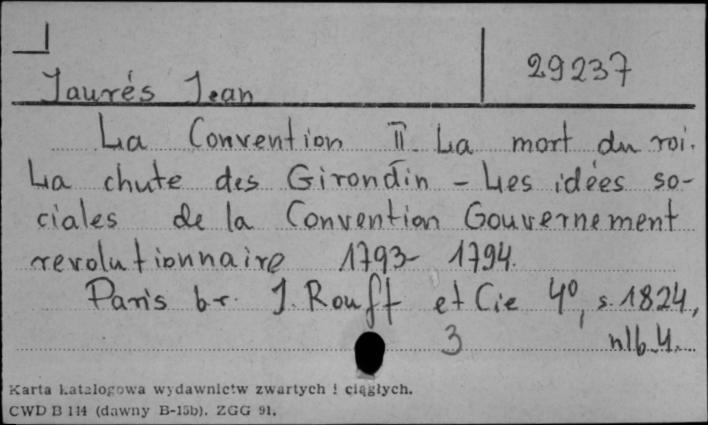 29237
Jaurés Jean
La Convention II. La mort du roi.
La chute des Girondin - Les idées so-
ciales de la Convention Gouvernement
revolutionnaire 1793- 1794.
Paris br. J. Rouff et Cie 4°, s. 1824,
3 nlb. 4.
Karta katalogowa wydawnictw zwartych i ciągłych.
CWD B 114 (dawny B-15b). ZGG 91.